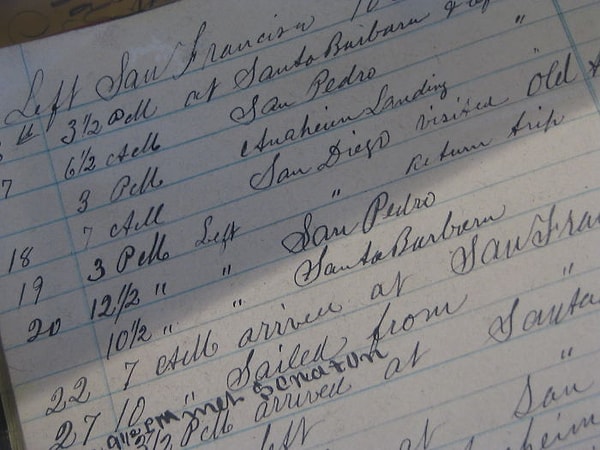 Left San Francisco 10
th 3 1/2 PM at Santa Barbara
6 1/2 AM San Pedro "
7 3 PM Anaheim Landing "
7 AM San Diego visited Old
18 3 PM Left " Return trip
19 12 1/2 " " San Pedro
20 10 1/2 " " Santa Barbara
22 7 AM arrived at San Fran
27 10 " Sailed from "
9 1/2 PM met Senator
3 1/2 PM arrived at Santa
left "
at San